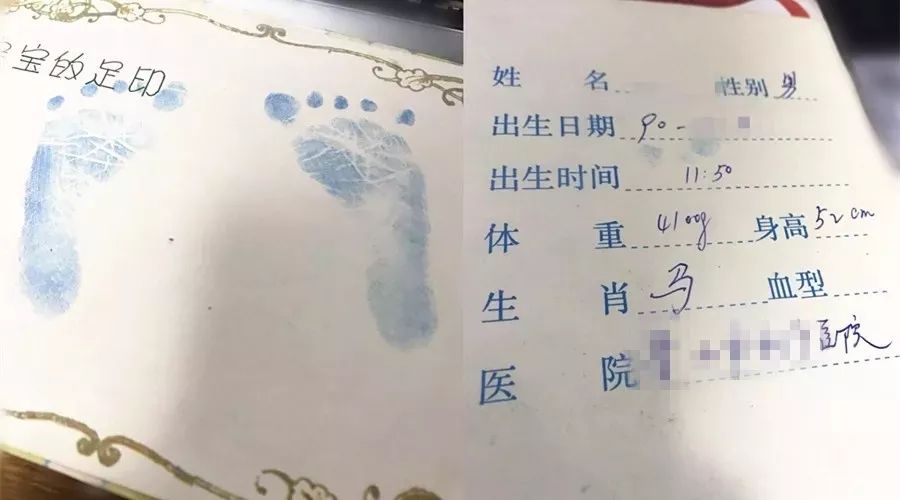 宝的足印
姓 名 性别 男
出生日期 90-
出生时间 11:50
体 重 4100g 身高 52cm
生 肖 马 血型
医 院 医院